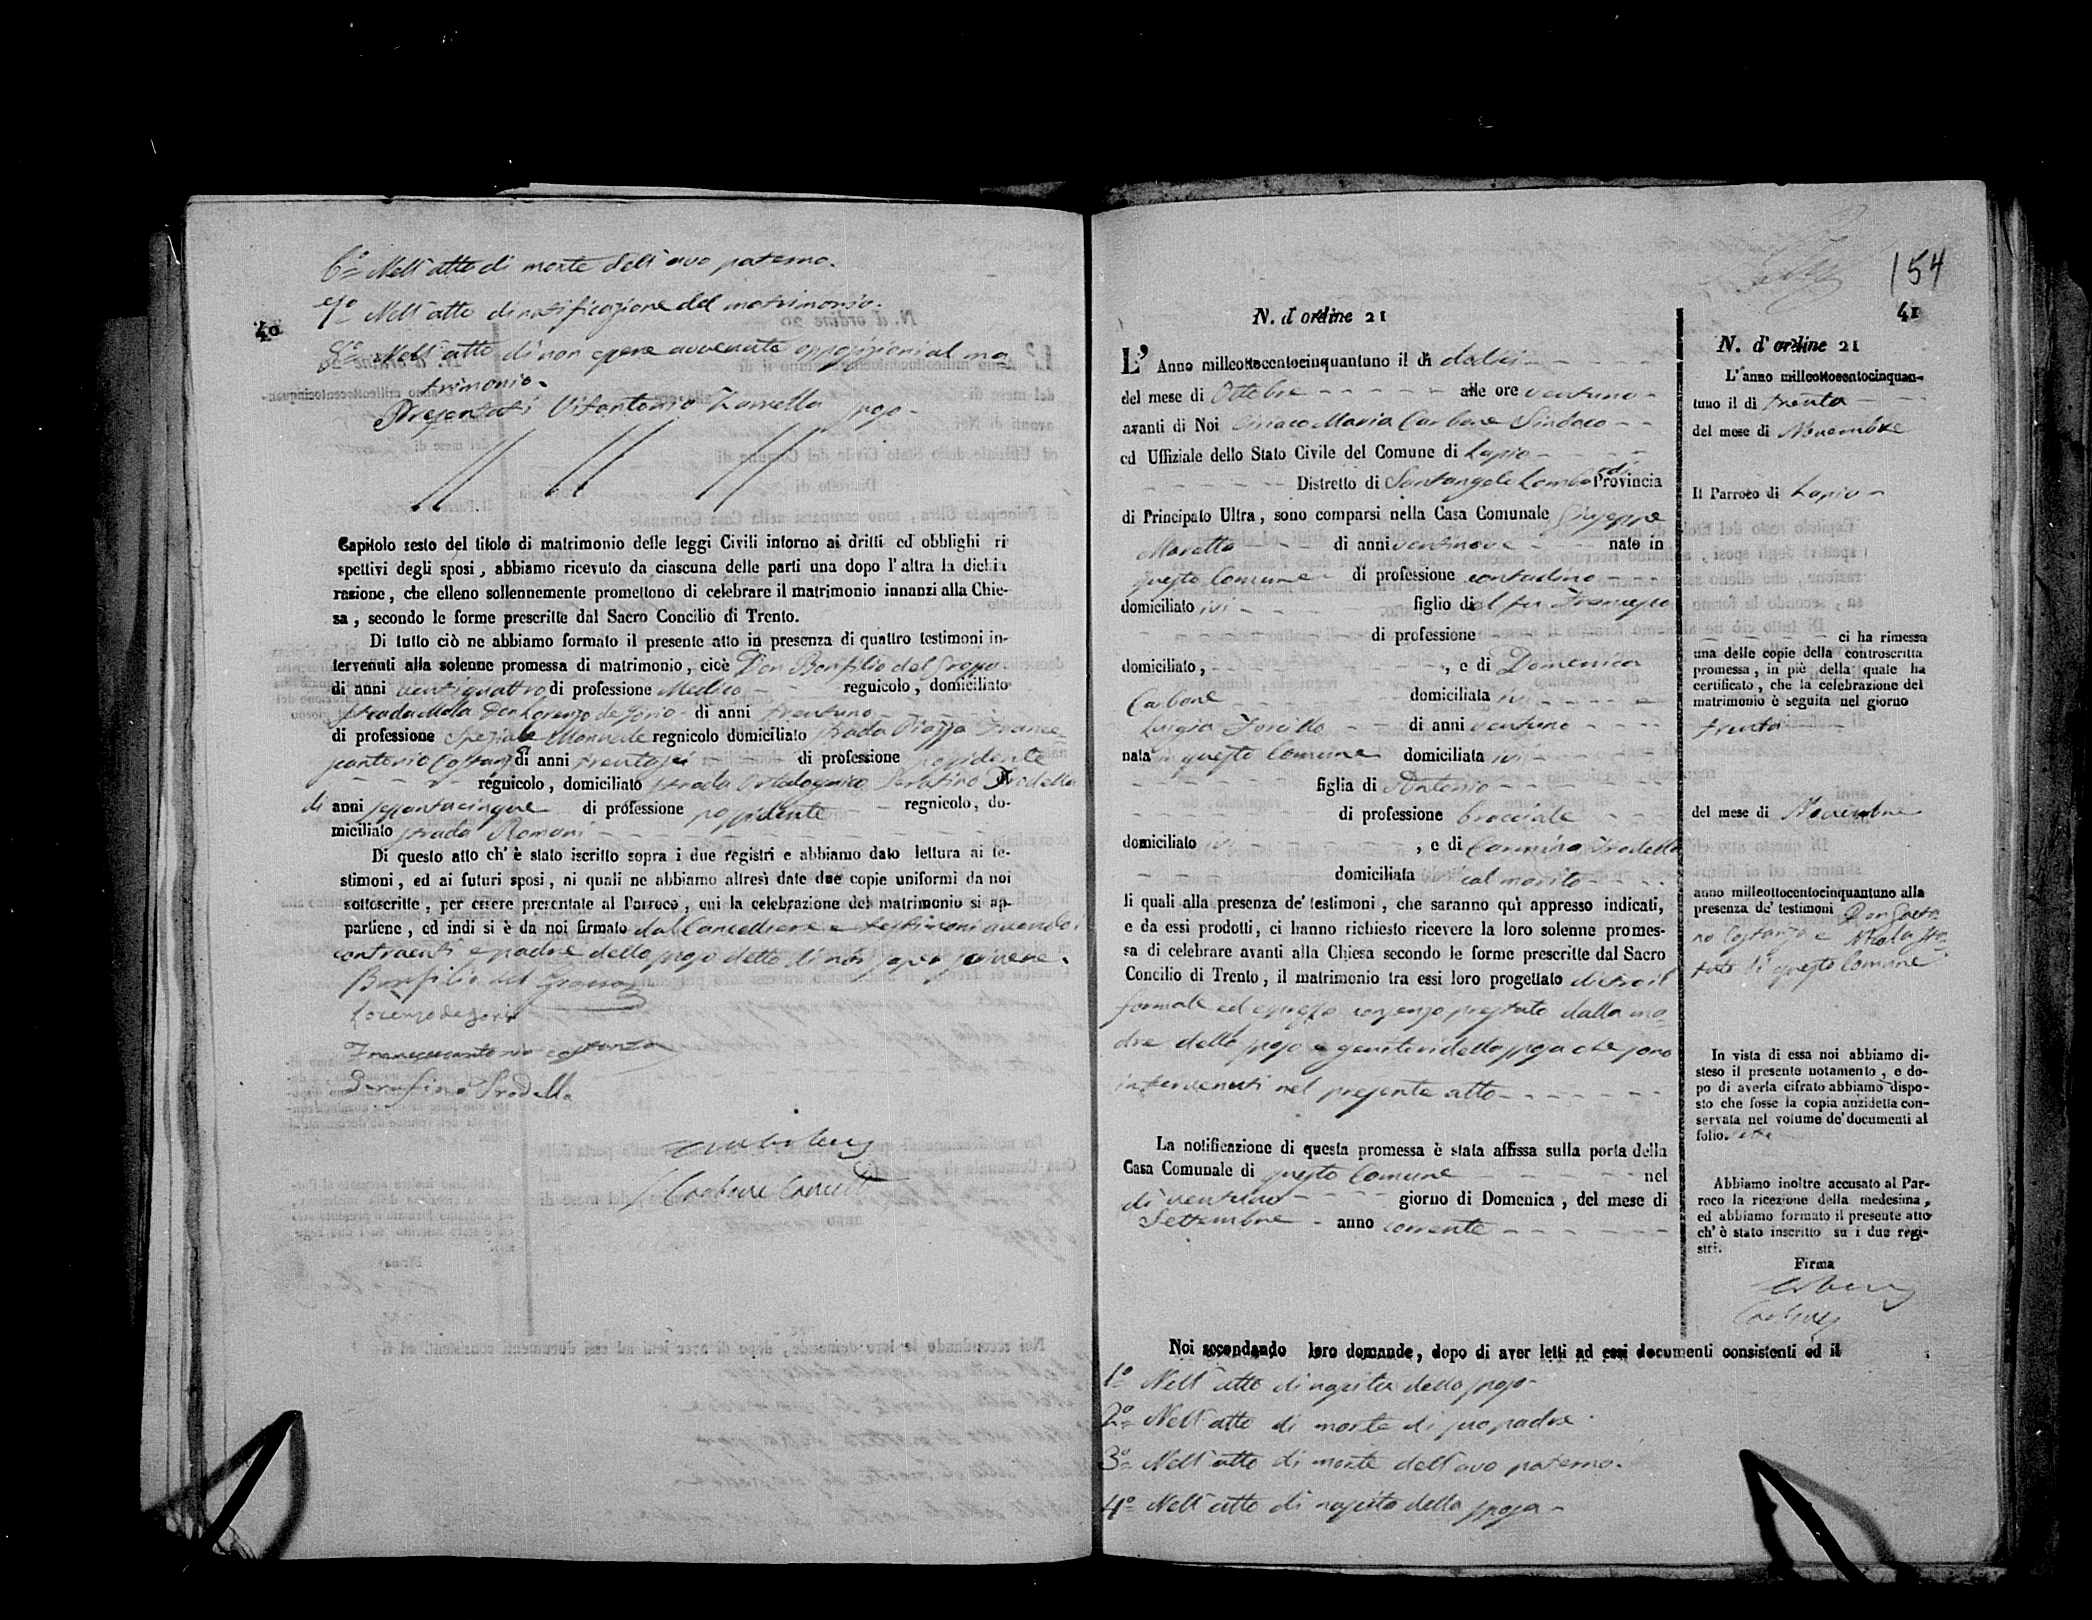 6º Nell'atto di morte dell'avo paterno.
7º Nell'atto di notificazione del matrimonio.
40
8º Nell'atto di non essere avvenute opposizioni al ma
trimonio.
Presentati Vitantonio Zarrella sposo
Capitolo sesto del titolo di matrimonio delle leggi Civili intorno ai dritti ed obblighi ri
spettivi degli sposi, abbiamo ricevuto da ciascuna delle parti una dopo l'altra la dichia
razione, che elleno sollennemente promettono di celebrare il matrimonio innanzi alla Chie-
sa, secondo le forme prescritte dal Sacro Concilio di Trento.
Di tutto ciò ne abbiamo formato il presente atto in presenza di quattro testimoni in-
tervenuti alla solenne promessa di matrimonio, cioè Don Bonfilio del Grosso
di anni ventiquattro di professione Medico regnicolo, domiciliato
strada Don Lorenzo de Jorio di anni trentuno
di professione Speziale Manuale regnicolo domiciliato strada Piazza France
scantonio Costanza di anni trentasei di professione possidente
regnicolo, domiciliato strada Serafino Frodella
di anni sessantacinque di professione possidente regnicolo, do-
miciliato strada Romani
Di questo atto ch'è stato iscritto sopra i due registri e abbiamo dato lettura ai te-
stimoni, ed ai futuri sposi, ai quali ne abbiamo altresì date due copie uniformi da noi
sottoscritte, per essere presentate al Parroco, cui la celebrazione del matrimonio si ap-
partiene, ed indi si è da noi firmato dal Cancelliere e testimoni avendo i
contraenti e padre dello sposo detto di non saper scrivere.
Bonfilio del Grosso
Lorenzo de Jorio
Francescantonio Costanza
Serafino Frodella
Carbone
Carbone Cancell
154
41
N. d'ordine 21
L'Anno milleottocentocinquantuno il dì dodici
del mese di Ottobre alle ore ventuno
avanti di Noi Ciriaco Maria Carbone Sindaco
ed Uffiziale dello Stato Civile del Comune di Lapio
Distretto di Santangelo Lombardi Provincia
di Principato Ultra, sono comparsi nella Casa Comunale Giuseppe
Moretto di anni ventinove nato in
questo Comune di professione contadino
domiciliato ivi figlio di al fu Francesco
di professione
domiciliato, , e di Domenica
Carbone domiciliata ivi
Luigia Forcillo di anni ventuno
nata in questo Comune domiciliata ivi
figlia di Antonio
di professione bracciale
domiciliato ivi , e di Carmina Frodella
domiciliata col marito
li quali alla presenza de' testimoni, che saranno quì appresso indicati,
e da essi prodotti, ci hanno richiesto ricevere la loro solenne promes-
sa di celebrare avanti alla Chiesa secondo le forme prescritte dal Sacro
Concilio di Trento, il matrimonio tra essi loro progettato dietro il
formale ed espresso consenso prestato dalla ma
dre dello sposo e genitori della sposa che sono
intervenuti nel presente atto
La notificazione di questa promessa è stata affissa sulla porta della
Casa Comunale di questo Comune nel
dì ventuno giorno di Domenica, del mese di
Settembre anno corrente
N. d'ordine 21
L'anno milleottocentocinquan-
tuno il di trenta
del mese di Novembre
Il Parroco di Lapio
ci ha rimessa
una delle copie della controscritta
promessa, in piè della quale ha
certificato, che la celebrazione del
matrimonio è seguita nel giorno
trenta
del mese di Novembre
anno milleottocentocinquantuno alla
presenza de' testimoni Don Gaeta
no Costanza e Nicola
di questo Comune
In vista di essa noi abbiamo di-
steso il presente notamento, e do-
po di averla cifrato abbiamo dispo-
sto che fosse la copia anzidetta con-
servata nel volume de'documenti al
folio
Abbiamo inoltre accusato al Par-
roco la ricezione della medesima,
ed abbiamo formato il presente atto
ch'è stato inscritto su i due regi-
stri.
Firma
Carbone
Carbone
Noi secondando loro domande, dopo di aver letti ad essi documenti consistenti ed il
1º Nell'atto di nascita dello sposo
2º Nell'atto di morte di suo padre.
3º Nell'atto di morte dell'avo paterno.
4º Nell'atto di nascita della sposa